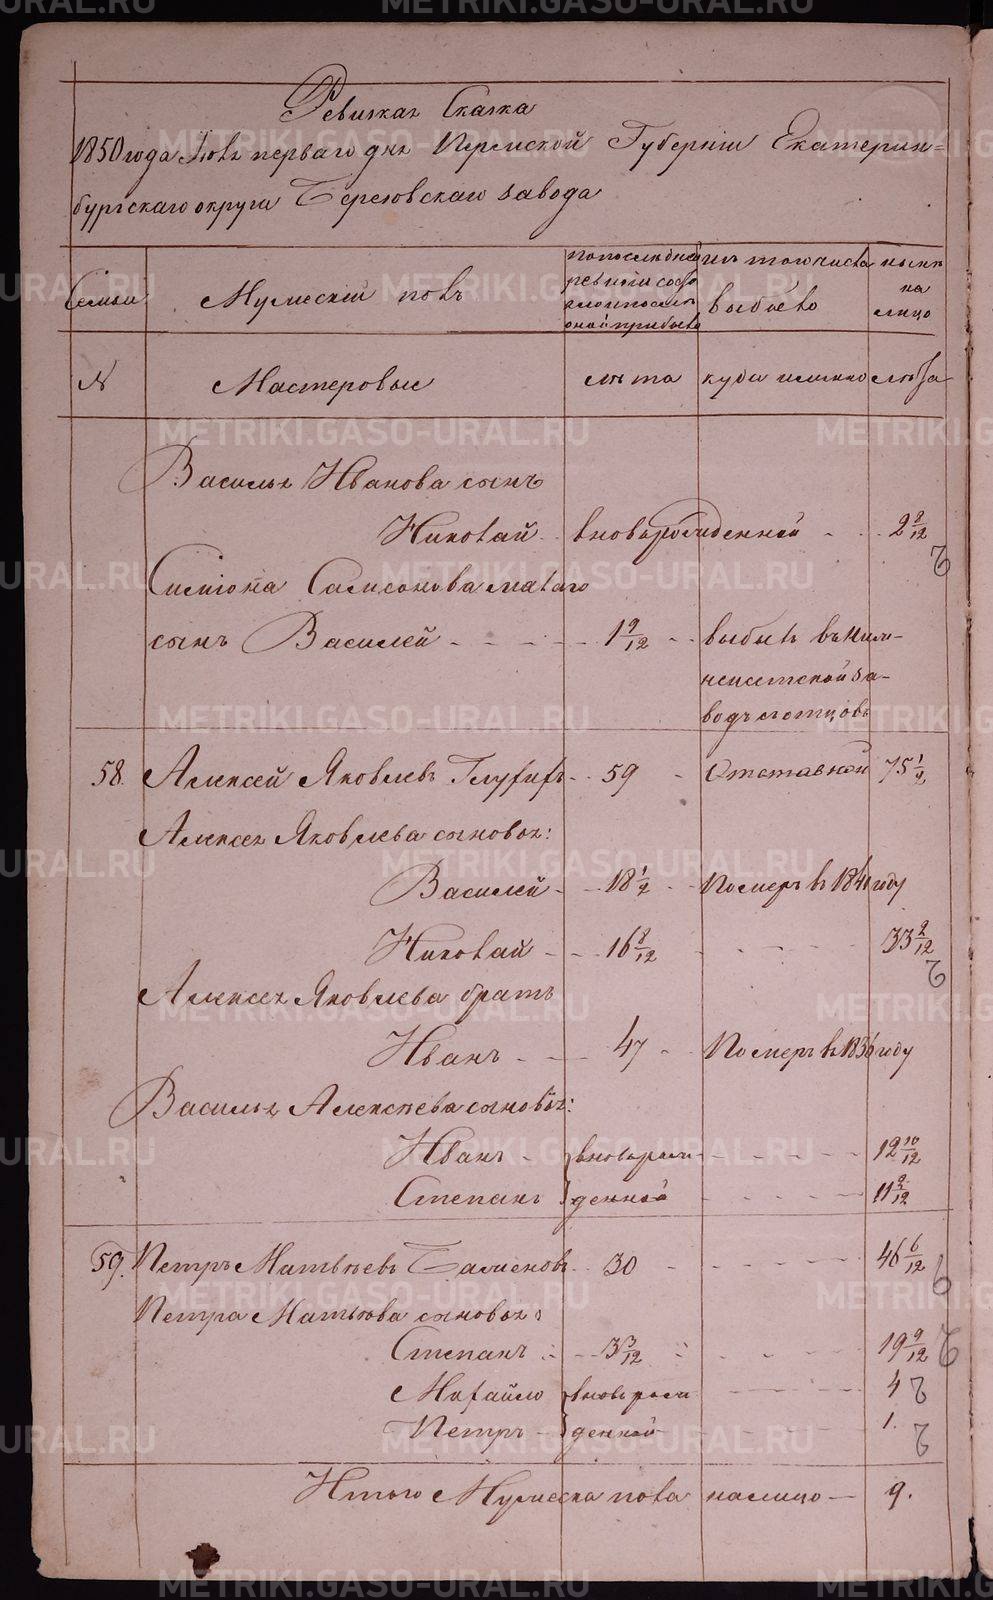 Ревизкая Сказка
1850 года Июня перваго дня Пермской Губерніи Екатерин=
бургскаго округа Березовскаго завода
Семьи
Мужескій полъ
по последней
ревизіи состо
яло и после
оной прибыло
изъ того числа
выбыло
ныне
на
лицо
№
Мастеровые
лѣта
куда именно
лѣта
Василья Иванова сынъ
Николай вновьрожденной 2 9/12
Симіона Самсонова малаго
сынъ Василей 1 9/12 выбылъ въ Ниж-
неисетской за-
водъ с отцовъ
58. Алексей Яковлевъ 59 Отставной 75 1/2
Алексея Яковлева сыновья:
Василей 18 1/2 Померъ в 1841 году
Николай 16 8/12 33 2/12
Алексея Яковлева братъ
Иванъ 47 Померъ в 1836 году
Василья Алексѣева сыновья:
Иванъ вновьрож- 12 10/12
Степанъ денной 11 2/12
59. Петръ Матвѣевъ 30 46 6/12
Петра Матвѣева сыновья:
Степанъ 3 3/12 19 9/12
Михайло вновьрож 4
Петръ денной 1.
Итого Мужеска пола налицо 9.
METRIKI.GASO-URAL.RU